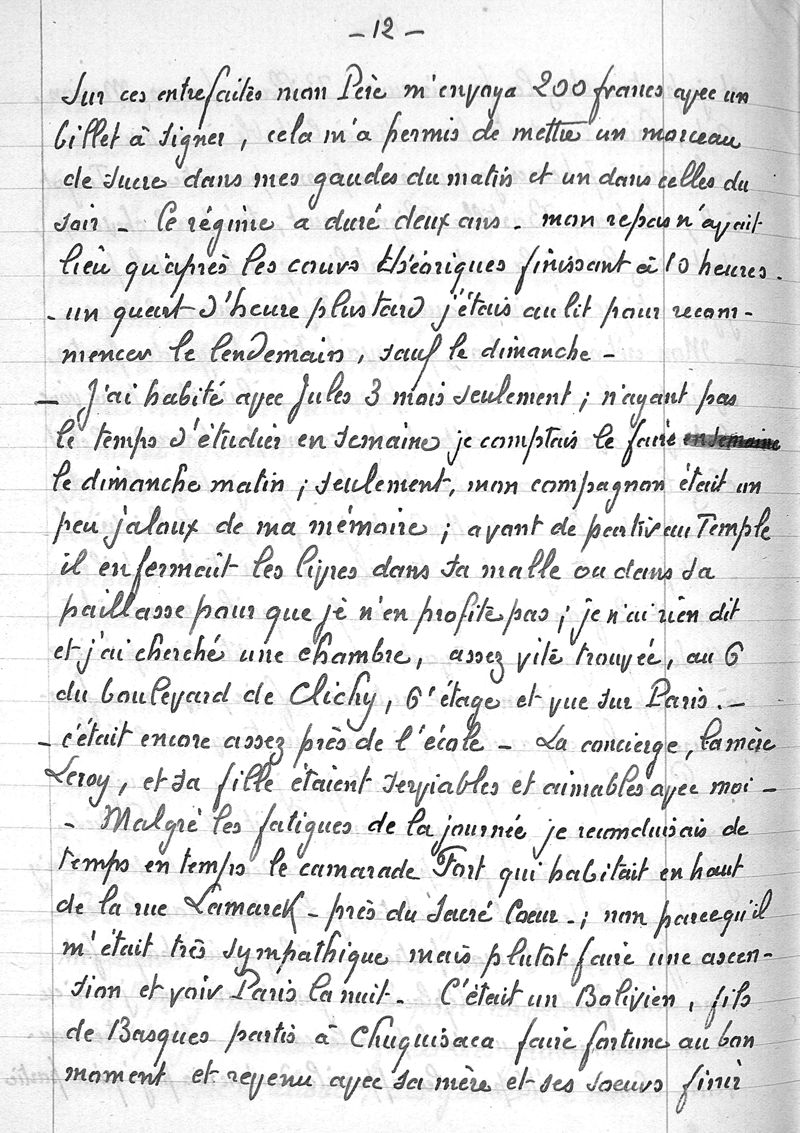 - 12 -
Sur ces entrefaites mon Père m'envoya 200 francs avec un
billet à signer, cela m'a permis de mettre un morceau
de sucre dans mes gaudes du matin et un dans celles du
soir - Ce régime a duré deux ans - mon repas n'avait
lieu qu'après les cours théoriques finissant à 10 heures.
- un quart d'heure plus tard j'étais au lit pour recom-
mencer le lendemain, sauf le dimanche -
- J'ai habité avec Jules 3 mois seulement ; n'ayant pas
le temps d'étudier en semaine je comptais le faire en semaine
le dimanche matin ; seulement, mon compagnon était un
peu jaloux de ma mémoire ; avant de partir au Temple
il enfermait les livres dans sa malle ou dans sa
paillasse pour que je n'en profite pas ; je n'ai rien dit
et j'ai cherché une chambre, assez vite trouvée, au 6
du boulevard de Clichy, 6' étage et vue sur Paris. -
- c'était encore assez près de l'école - La concierge, la mère
Leroy, et sa fille étaient serviables et aimables avec moi -
- Malgré les fatigues de la journée je reconduisais de
temps en temps le camarade Fort qui habitait en haut
de la rue Lamarck - près du Sacré Coeur - ; non parcequ'il
m'était très sympathique mais plutot faire une ascen-
sion et voir Paris la nuit - C'était un Bolivien, fils
de Basques partis à Chuquisaca faire fortune au bon
moment et revenu avec sa mère et ses soeurs finir